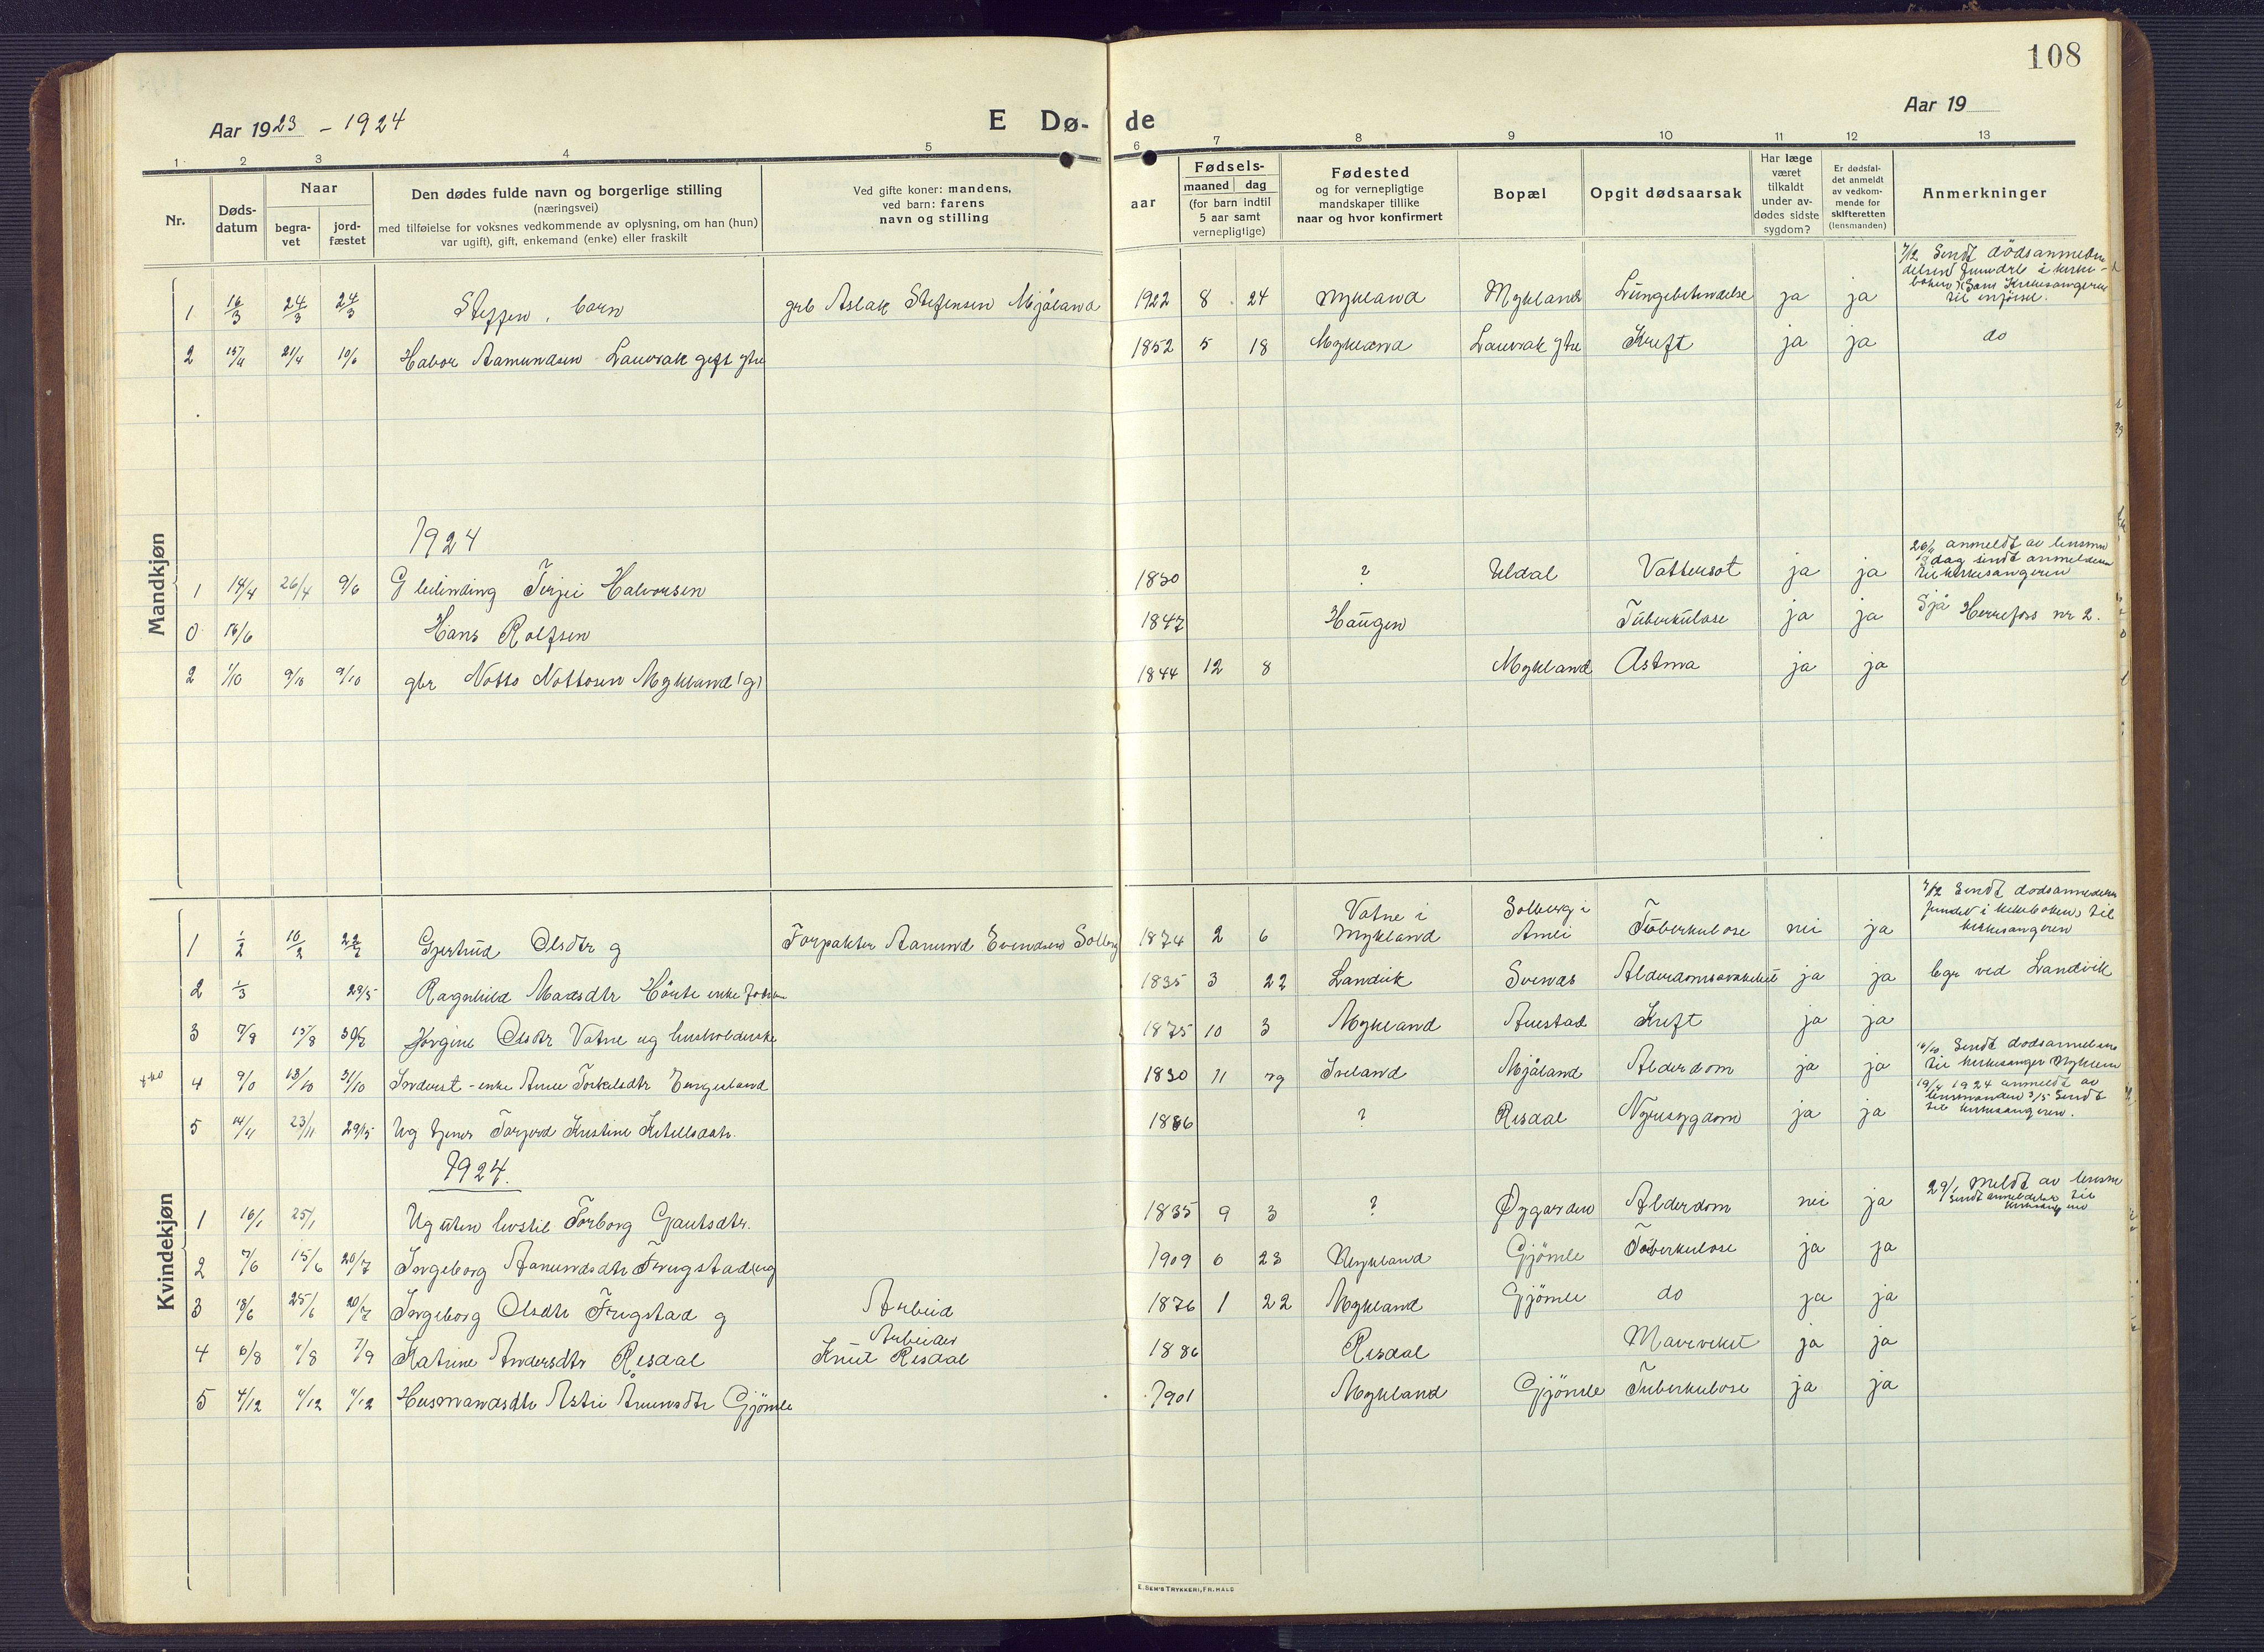 108
Aar 1923 - 1924
E Dø- de
Aar 19
1 2 3 4 5 6 7 8 9 10 11 12 13
Nr.
Døds-
datum
Naar
begra-
vet
jord-
fæstet
Den dødes fulde navn og borgerlige stilling
(næringsvei)
med tilføielse for voksnes vedkommende av oplysning, om han (hun)
var ugift), gift, enkemand (enke) eller fraskilt
Ved gifte koner: mandens,
ved barn: farens
navn og stilling
aar
Fødsels-
maaned dag
(for barn indtil
5 aar samt
vernepligtige)
Fødested
og for vernepligtige
mandskaper tillike
naar og hvor konfirmert
Bopæl
Opgit dødsaarsak
Har læge
været
tilkaldt
under av-
dødes sidste
sygdom?
Er dødsfal-
det anmeldt
av vedkom-
mende for
skifteretten
(lensmanden)
Anmerkninger
Mandkjøn
1 16/3 24/3 24/3 Steffen, barn Aslak Stefensen Mjåland 1922 8 24 Mykland Mykland Lungebetændelse ja ja 7/12 Sendt dödsanmeldelsen
til
2 15/4 21/4 10/6 Halvor Aamundsen Lauvrak gift 1852 5 18 Mykland Lauvrak Kreft ja ja do
1924
1 18/4 26/4 9/6 Terjei Halvorsen 1830 ? Uldal Vattersot ja ja 26/4 anmeldt av lensm
dag sendt anmeldelsen
til kirkesangeren
0 16/6 Hans Rolfsen 1847 Haugen Tuberkulose ja ja Sjå Herrefoss nr 2.
2 1/10 9/10 9/10 gbr Notto Nottosen Mykland (g) 1844 12 8 Mykland Astma ja ja
Kvindekjøn
1 1/2 10/2 Gjertrud Olsdtr g Forpakter Aanund Evendsen Solberg 1874 2 6 Vatne i
Mykland Solberg i
Amli Tuberkulose nei ja 7/12 Sendt dodsanmeldelsen
fundet i kirkeboken, til
kirkesangeren
2 1/3 29/5 Ragnhild Madsdtr enke 1835 3 22 Landvik Svenas Alderdomssvakhet ja ja begr ved Landvik
3 7/8 15/8 Jorgine Olsdtr Vatne ug husholderske 1875 10 3 Mykland Austad Kreft ja ja
4 13/10 31/10 enke Anne Torkelsdtr Engesland 1830 11 29 Iveland Mjåland Alderdom ja ja Sendt dodsanmeldelsen
til kirkesanger Mykland
5 14/11 23/11 29/5 Ug tjener Torjerd Kristine Ketellsdatr. ? Risdal Nyresygdom ja ja 19/4 1924 anmeldt av
lensmanden 3/5 Sendt
til kirkesangeren.
1924.
1 16/1 25/1 Ug uten livstil Torborg Gautsdtr. 1835 9 3 ? Øygarden Alderdom nei ja 29/1 Meldt av lensm
Sendt anmeldelse til
2 7/6 15/6 20/7 Ingeborg Aanundsdtr Frugstad ug 1909 6 23 Mykland Gjömle Tuberkulose ja ja
3 18/6 25/6 20/7 Ingeborg Olsdtr Frugstad g Arbeid 1876 1 22 Mykland Gjömle do ja ja
4 6/8 11/8 7/9 Katrine Andersdtr Risdal Arbeider
Knut Risdal 1886 Risdal Mavevekst ja ja
5 4/12 11/12 11/12 Husmandsdtr Astri Anundsdtr Gjömle 1901 Mykland Gjömle Tuberkulose ja ja
E. SEM'S TRYKKERI, FR.HALD